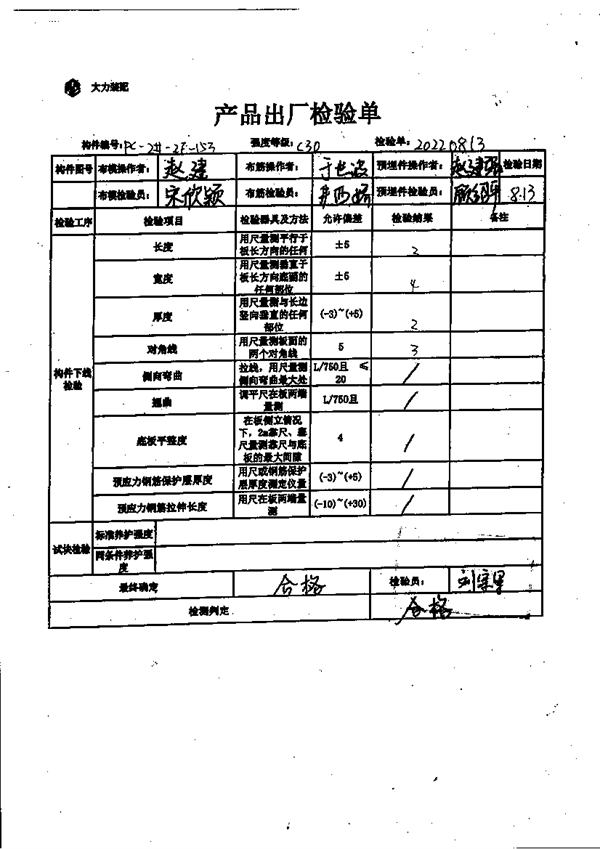 大力装配
产品出厂检验单
构件编号:PC-2#-2F-153 强度等级:C30 检验单:20220813
构件图号 布模操作者: 赵建 布筋操作者: 预埋件操作者: 赵建强 检验日期
布模检验员: 宋欣颖 布筋检验员: 预埋件检验员: 8.13
检验工序 检验项目 检验器具及方法 允许偏差 检验结果 备注
构件下线检验
长度 用尺量测平行于板长方向的任何 ±5 2
宽度 用尺量测垂直于板长方向底面的任何部位 ±5 4
厚度 用尺量测与长边竖向垂直的任何部位 (-3)~(+5) 2
对角线 用尺量测板面的两个对角线 5 3
侧向弯曲 拉线,用尺量测侧向弯曲最大处 L/750且 ≤20 /
翘曲 调平尺在板两端量测 L/750且 /
底板平整度 在板侧立情况下,2m靠尺、塞尺量测靠尺与底板的最大间隙 4 /
预应力钢筋保护层厚度 用尺或钢筋保护层厚度测定仪量 (-3)~(+5) /
预应力钢筋拉伸长度 用尺在板两端量测 (-10)~(+30) /
试块检验 标准养护强度
同条件养护强度
最终确定 合格 检验员:
检测判定 合格